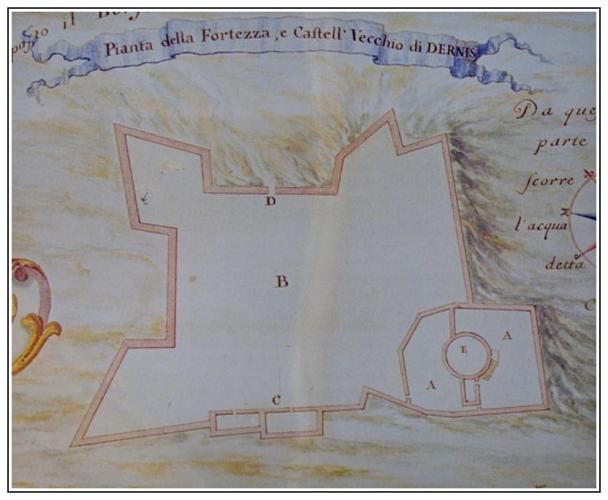 il
Pianta della Fortezza, e Castell' Vecchio di DERNIS
Da
parte
scorre
l'acqua
detta
D
B
A
E
A
C